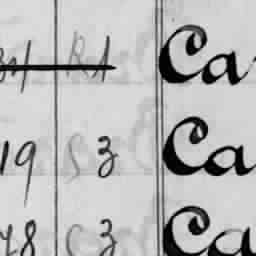 31 R1 Ca
19 S 3 Ca
78 S 3 Ca